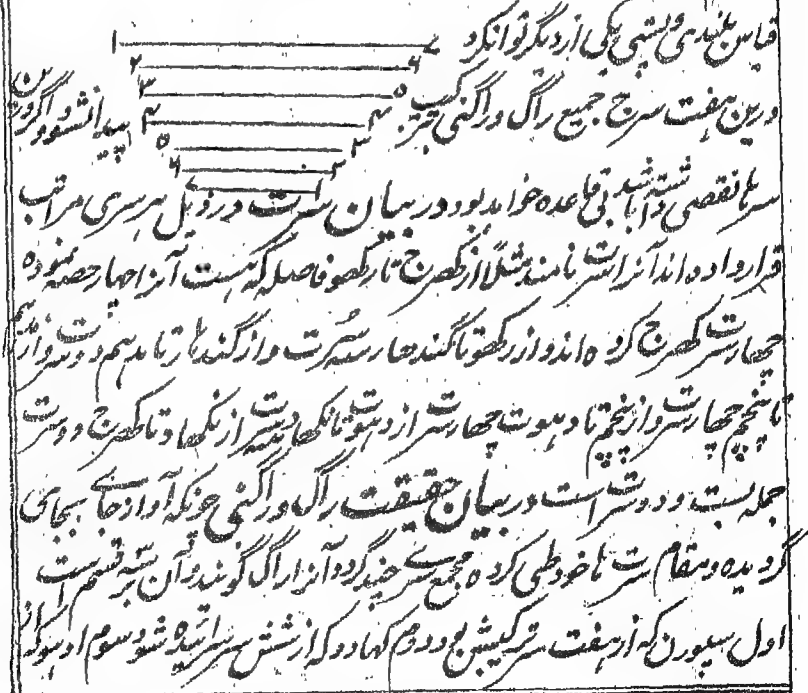 قیاس بلندی و پستی یکی از دیگر توانکرد
۱ ۷
۲ ۶
۳ ۵
۴ ۴
۵ ۳
۶ ۲
۷ ۱
درین هفت سرج جمیع راگ و راگنی جز ترکیب پیدا نشود و اگر درین
سرها نقصی داشته باشد بی قاعده خواهد بود در بیان سرت در ذیل هر سری مراتب
قرار داده اند آنرا سرت نامند مثلا از کهرج تا رکهو فاصله که هست آنرا چهار حصه نموده
چهار سرت کهرج کرده اند و از رکهو تا گندهار سه سرت و از گندهار تا مدهم دو سرت و از مدهم
تا پنچم چهار سرت و از پنچم تا دهیوت چهار سرت از دهیوت تا نکهاد سه سرت از نکهاد تا کهرج دو سرت
جمله بست و دو سرت است در بیان حقیقت راگ و راگنی چونکه آواز جای بجای
گردیده و مقام سرت ها خود طی کرده مجمع سرے چند گردد آنرا راگ گویند و آن بر سه قسم است
اول سنپورن که از هفت سر ترکیبش بود دوم کهادو که از شش سر زائیده شود سوم اودو که از